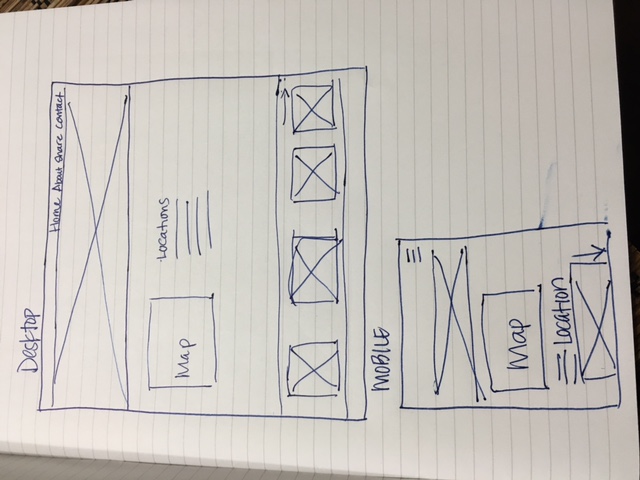 Desktop
Home About Share Contact
Locations
Map
MOBILE
Map
Location